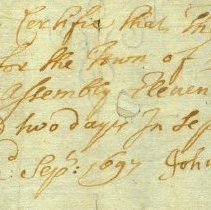 Certifie that
for the Town of
Assembly Eleven
two days In Sep
Sepr: 1697 John